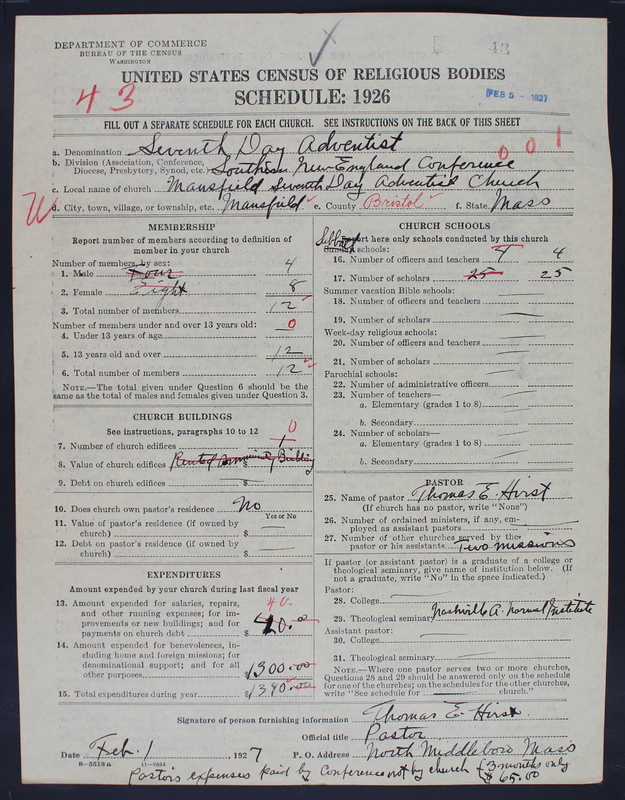 DEPARTMENT OF COMMERCE
BUREAU OF THE CENSUS
WASHINGTON
43
UNITED STATES CENSUS OF RELIGIOUS BODIES
SCHEDULE: 1926
43
FEB 5 - 1927
FILL OUT A SEPARATE SCHEDULE FOR EACH CHURCH. SEE INSTRUCTIONS ON THE BACK OF THIS SHEET
a. Denomination Seventh Day Adventist
001
b. Division (Association, Conference, Diocese, Presbytery, Synod, etc.) Southern New England Conference
c. Local name of church Mansfield Seventh Day Adventist Church
d. City, town, village, or township, etc. Mansfield e. County Bristol f. State Mass
MEMBERSHIP
Report number of members according to definition of
member in your church
Number of members, by sex:
1. Male Four 4
2. Female Eight 8
3. Total number of members 12
Number of members under and over 13 years old:
4. Under 13 years of age 0
5. 13 years old and over 12
6. Total number of members 12
NOTE.—The total given under Question 6 should be the
same as the total of males and females given under Question 3.
CHURCH BUILDINGS
See instructions, paragraphs 10 to 12
0
7. Number of church edifices 1
8. Value of church edifices Rent of Community Building $
9. Debt on church edifices $
10. Does church own pastor's residence No
Yes or No
11. Value of pastor's residence (if owned by
church) $
12. Debt on pastor's residence (if owned by
church) $
EXPENDITURES
Amount expended by your church during last fiscal year
13. Amount expended for salaries, repairs,
and other running expenses; for im-
provements or new buildings; and for
payments on church debt $ 40.00
40.
14. Amount expended for benevolences, in-
cluding home and foreign missions; for
denominational support; and for all
other purposes $1300.00
15. Total expenditures during year $1340.00
CHURCH SCHOOLS
Report here only schools conducted by this church
Sabbath
Sunday schools:
16. Number of officers and teachers 4 4
17. Number of scholars 25 25
Summer vacation Bible schools:
18. Number of officers and teachers
19. Number of scholars
Week-day religious schools:
20. Number of officers and teachers
21. Number of scholars
Parochial schools:
22. Number of administrative officers
23. Number of teachers—
a. Elementary (grades 1 to 8)
b. Secondary
24. Number of scholars—
a. Elementary (grades 1 to 8)
b. Secondary
PASTOR
25. Name of pastor Thomas E. Hirst
(If church has no pastor, write "None")
26. Number of ordained ministers, if any, em-
ployed as assistant pastors
27. Number of other churches served by the
pastor or his assistants Two missions
If pastor (or assistant pastor) is a graduate of a college or
theological seminary, give name of institution below. (If
not a graduate, write "No" in the space indicated.)
Pastor:
28. College
29. Theological seminary Nashville A. Normal Institute
Assistant pastor:
30. College
31. Theological seminary
NOTE.—Where one pastor serves two or more churches,
Questions 28 and 29 should be answered only on the schedule
for one of the churches; on the schedules for the other churches,
write "See schedule for church."
Signature of person furnishing information Thomas E. Hirst
Official title Pastor
Date Feb. 1, 1927 P. O. Address North Middleboro Mass
8—5518a 11—9554
Pastor's expenses paid by Conference not by church {3 months only
$65.00